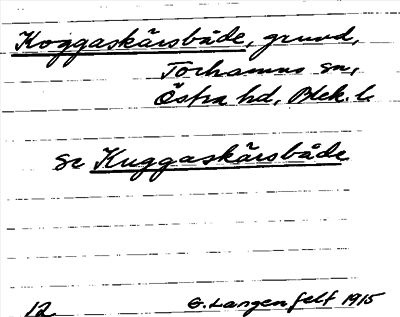 Koggaskärsbåde, grund,
Torhamns sn,
Östra hd, Blek. l.
se Kuggaskärsbåde
12 G. Langenfelt 1915